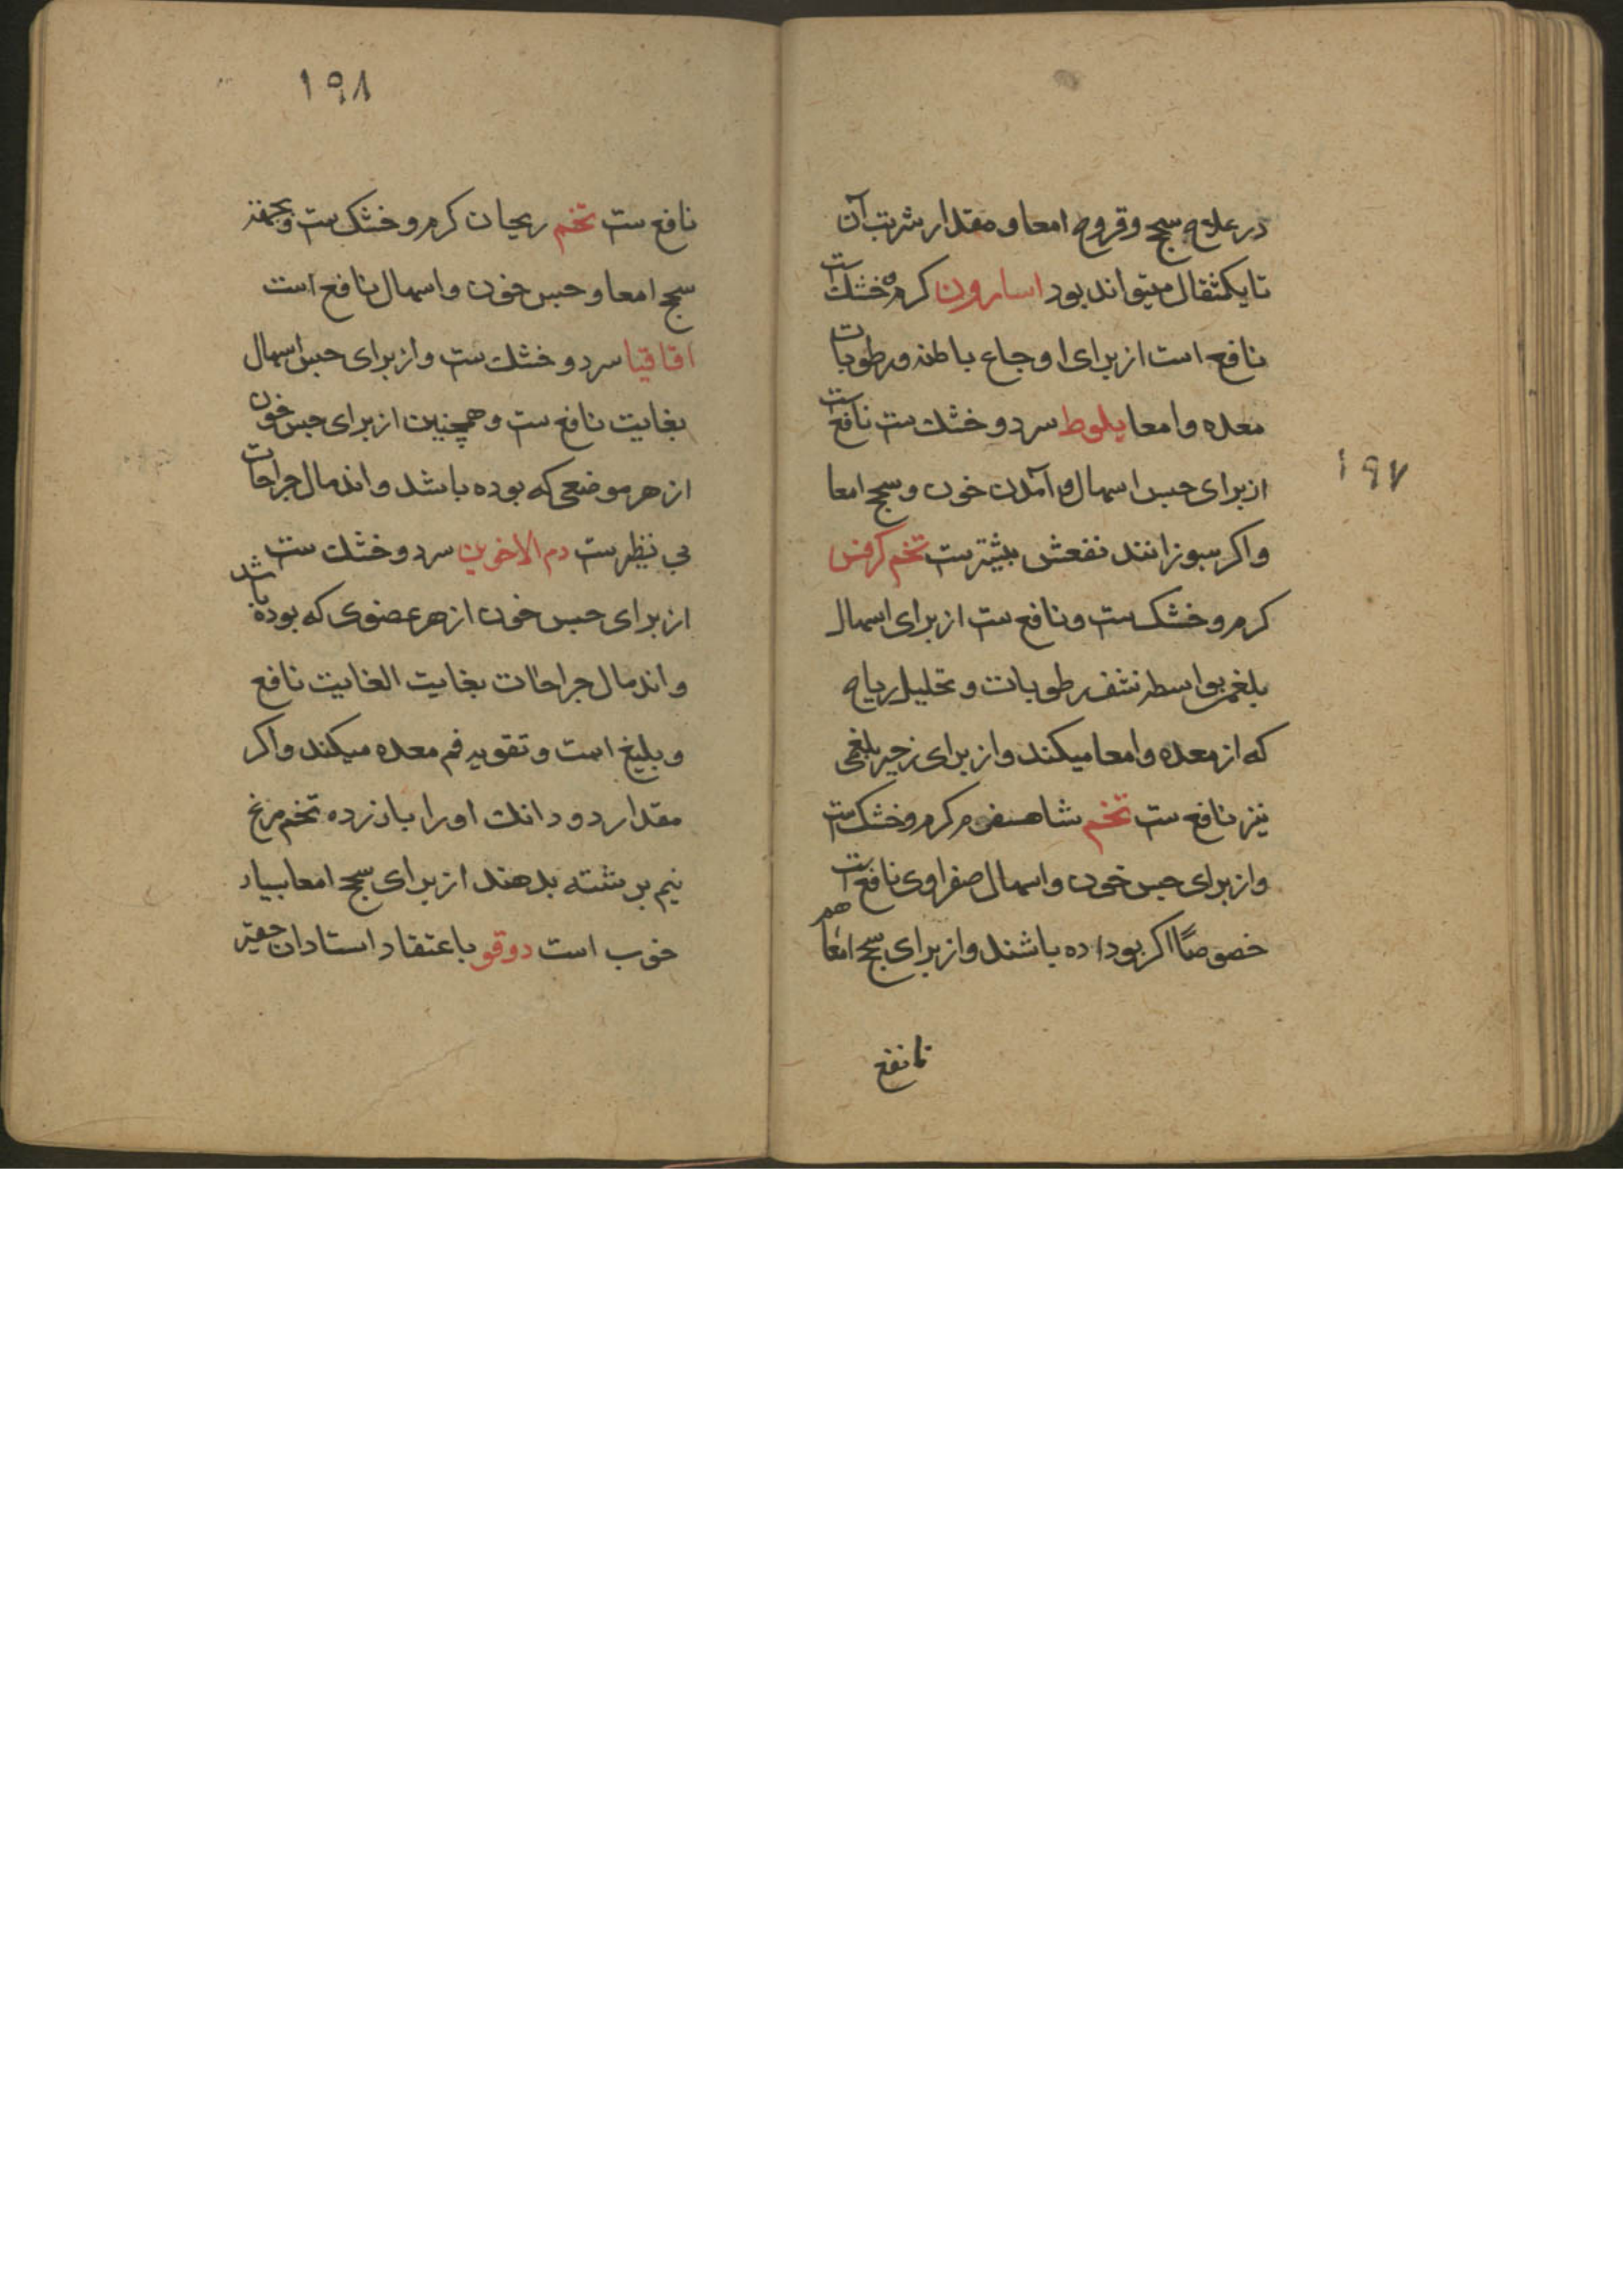 ۱۹۷
در علاج سحج و قروح امعا و مقدار شربت آن
تا یکثقال میتواند بود اسارون کرم و خشک است
نافع است از برای اوجاع باطنه و رطوبات
معده و امعا بلوط سرد و خشک ست نافع است
از برای حبس اسهال و برآمدن خون و سحج امعا
و اکر بسوزانند نفعش بیشترست تخم کرفس
کرم و خشک ست و نافع ست از برای اسهال
بلغمی بواسطه نشف رطوبات و تحلیل ریاح
که از معده و امعا میکند و از برای زحیر بلغمی
نیز نافع ست تخم شاهسفرم کرم و خشک ست
و از برای حبس خون و اسهال صفراوی نافع است
خصوصًا اکر بوداده باشند و از برای سحج امعا هم
نافع
۱۹۸
نافع ست تخم ریحان کرم و خشک ست و بجهة
سحج امعا و حبس خون و اسهال نافع است
اقاقیا سرد و خشک ست و از برای حبس اسهال
بغایت نافع ست و همچنین از برای حبس خون
از هر موضعی که بوده باشد و اندمال جراحات
بی نظیرست دم الاخوین سرد و خشک ست
از برای حبس خون از هر عضوی که بوده باشد
و اندمال جراحات بغایت الغایت نافع
و بلیغ است و تقویه فم معده میکند و اکر
مقدار دو دانک او را با زرده تخم مرغ
نیم برشته بدهند از برای سحج امعا بسیار
خوب است دوقو باعتقاد استادان حقیر